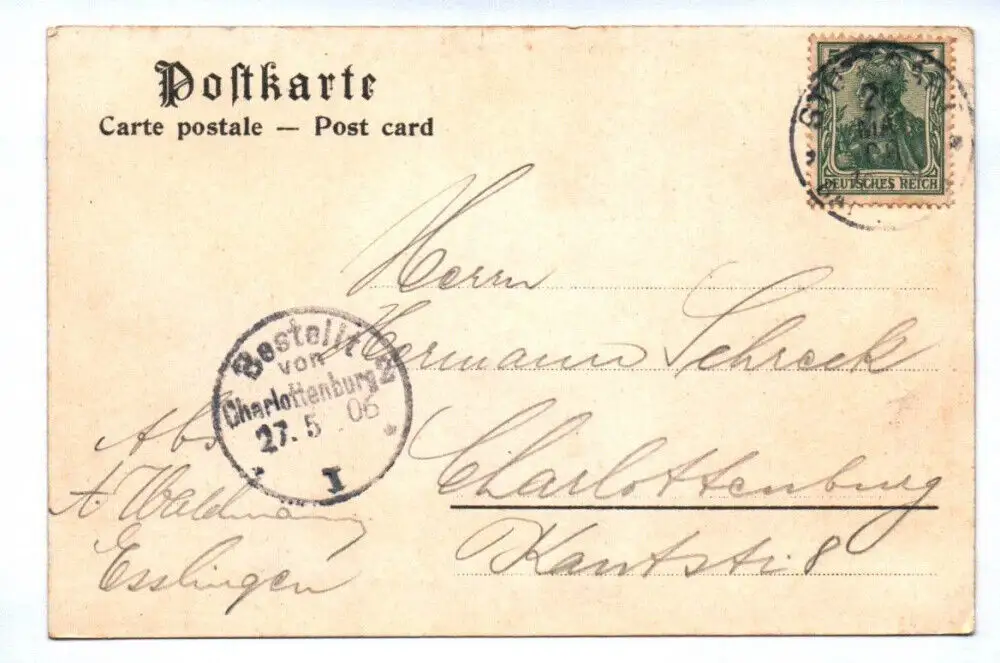 Postkarte
Carte postale — Post card
DEUTSCHES REICH
Herrn
Hermann Schreck
Charlottenburg
Kantstr 8
Bestellt
von
Charlottenburg 2
27. 5 06
I
Abs
A. Waldmann
Esslingen